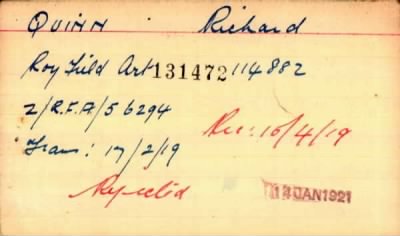 QUINN Richard
Roy Field Art 131472 114882
Z/R.F.A/56294
Rec: 16/4/19
Trans: 17/2/19
Rejected
14 JAN 1921